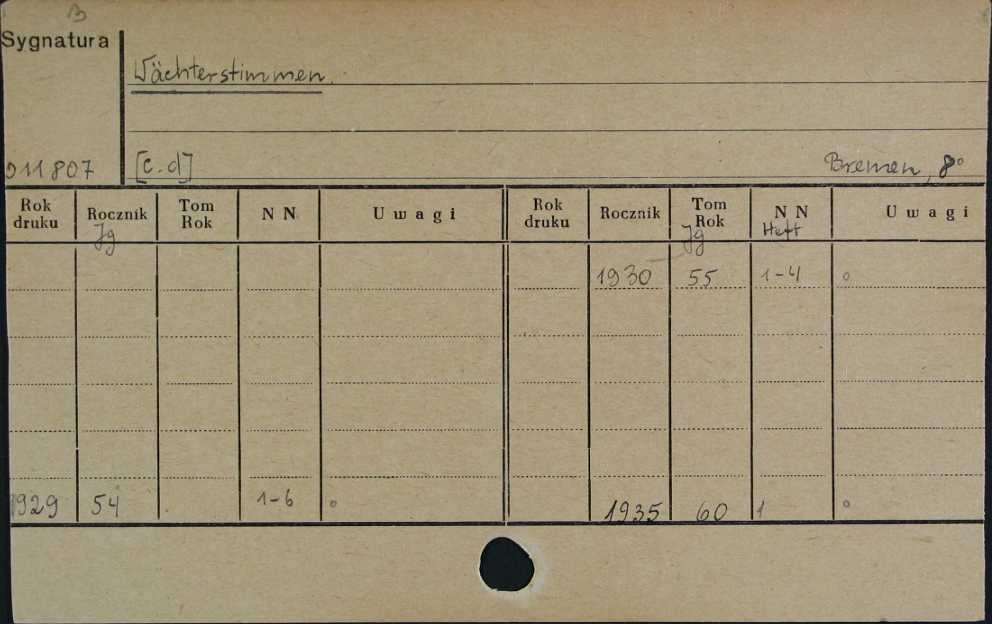 B
Sygnatura
Wächterstimmen.
011807 [c.d] Bremen, 8°
Rok druku Rocznik Tom Rok N N Uwagi Rok druku Rocznik Tom Rok N N Uwagi
Jg Jg Heft
1930 55 1-4 °
1929 54 1-6 ° 1935 60 1 °